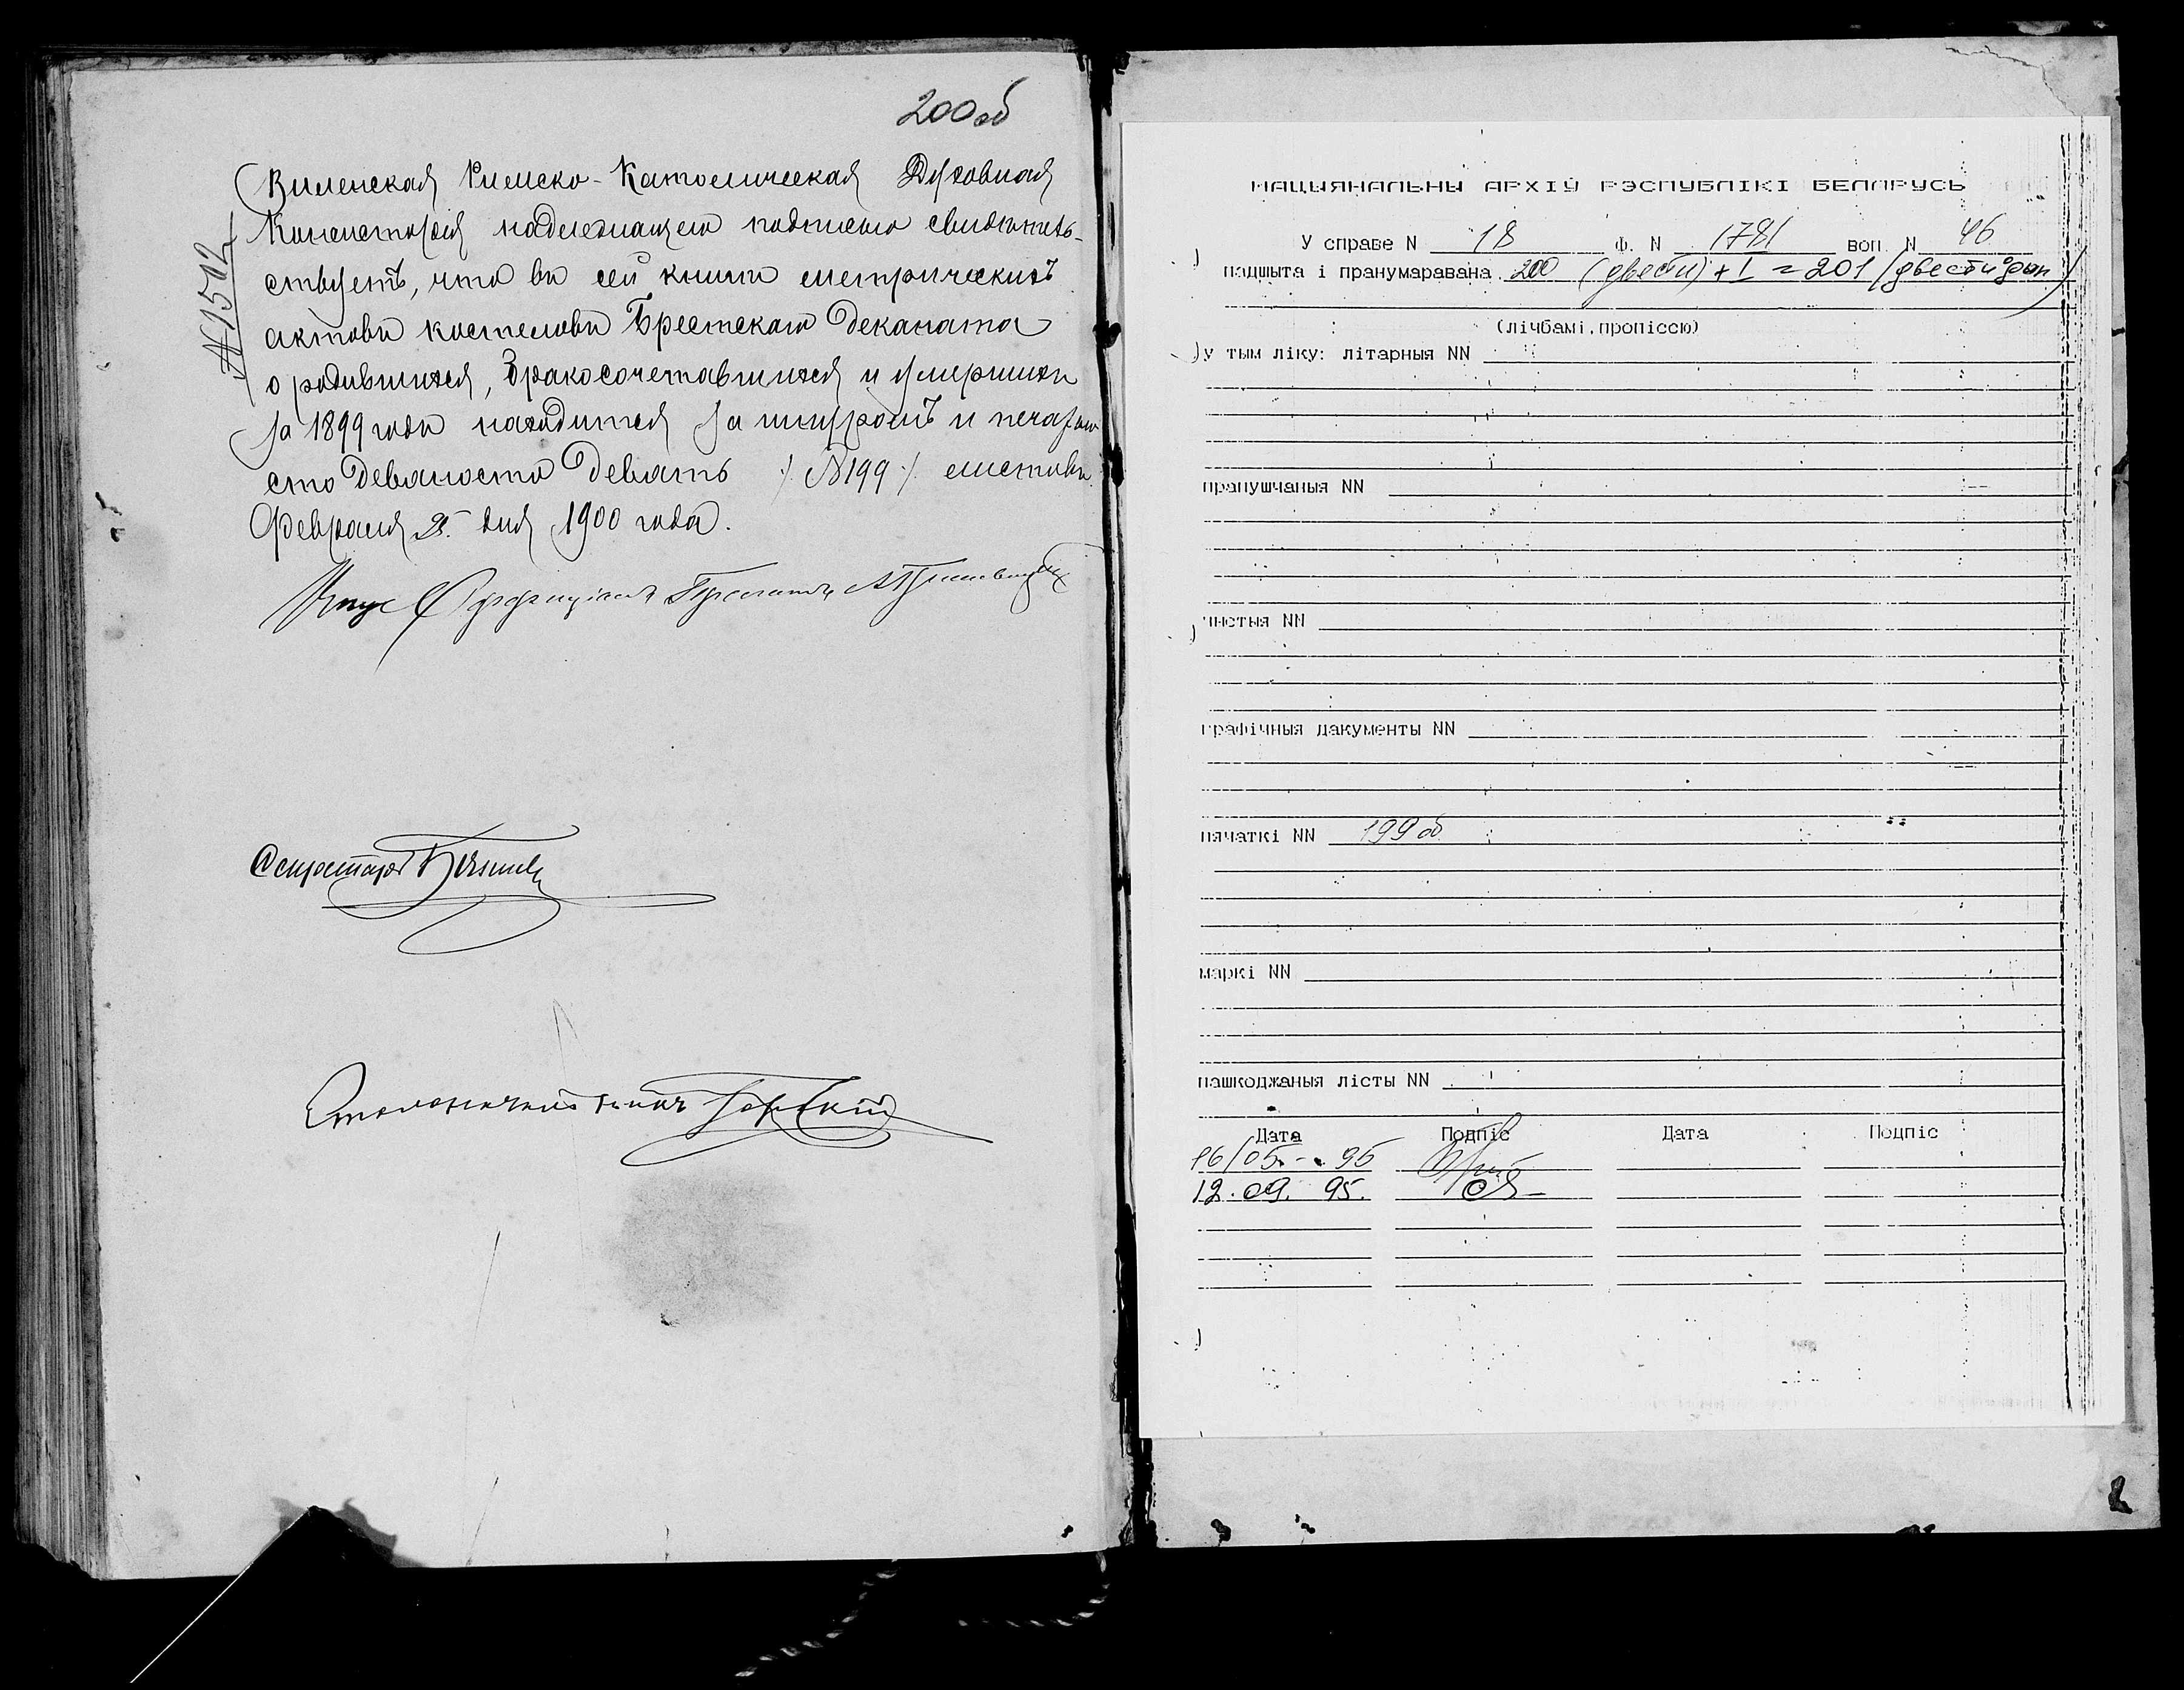 200 об
№ 1502
Виленская Римско-Католическая Духовная
Консисторія надлежащею подписью свидѣтель-
ствуетъ, что въ сей книгѣ метрическихъ
актовъ костеловъ Брестскаго Деканата
о родившихся, бракосочетавшихся и умершихъ
за 1899 годъ находится за шнуромъ и печатью
сто девяносто девять /. N 199 ./ листовъ.
Февраля дня 1900 года.
Оффиціалъ Прелатъ
Секретарь
Столоначальникъ
НАЦЫЯНАЛЬНЫ АРХІЎ РЭСПУБЛІКІ БЕЛАРУСЬ
У справе N 18 Ф. N 1781 воп. N 46
падшыта і пранумаравана 200 (двести) + 1 = 201 (двести один)
(лічбамі, пропіссю)
у тым ліку: літарныя NN
прапушчаныя NN
чыстыя NN
графічныя дакументы NN
пячаткі NN 199 об
маркі NN
пашкоджаныя лісты NN
Дата Подпіс Дата Подпіс
16/05. - 95
12. 09. 95.